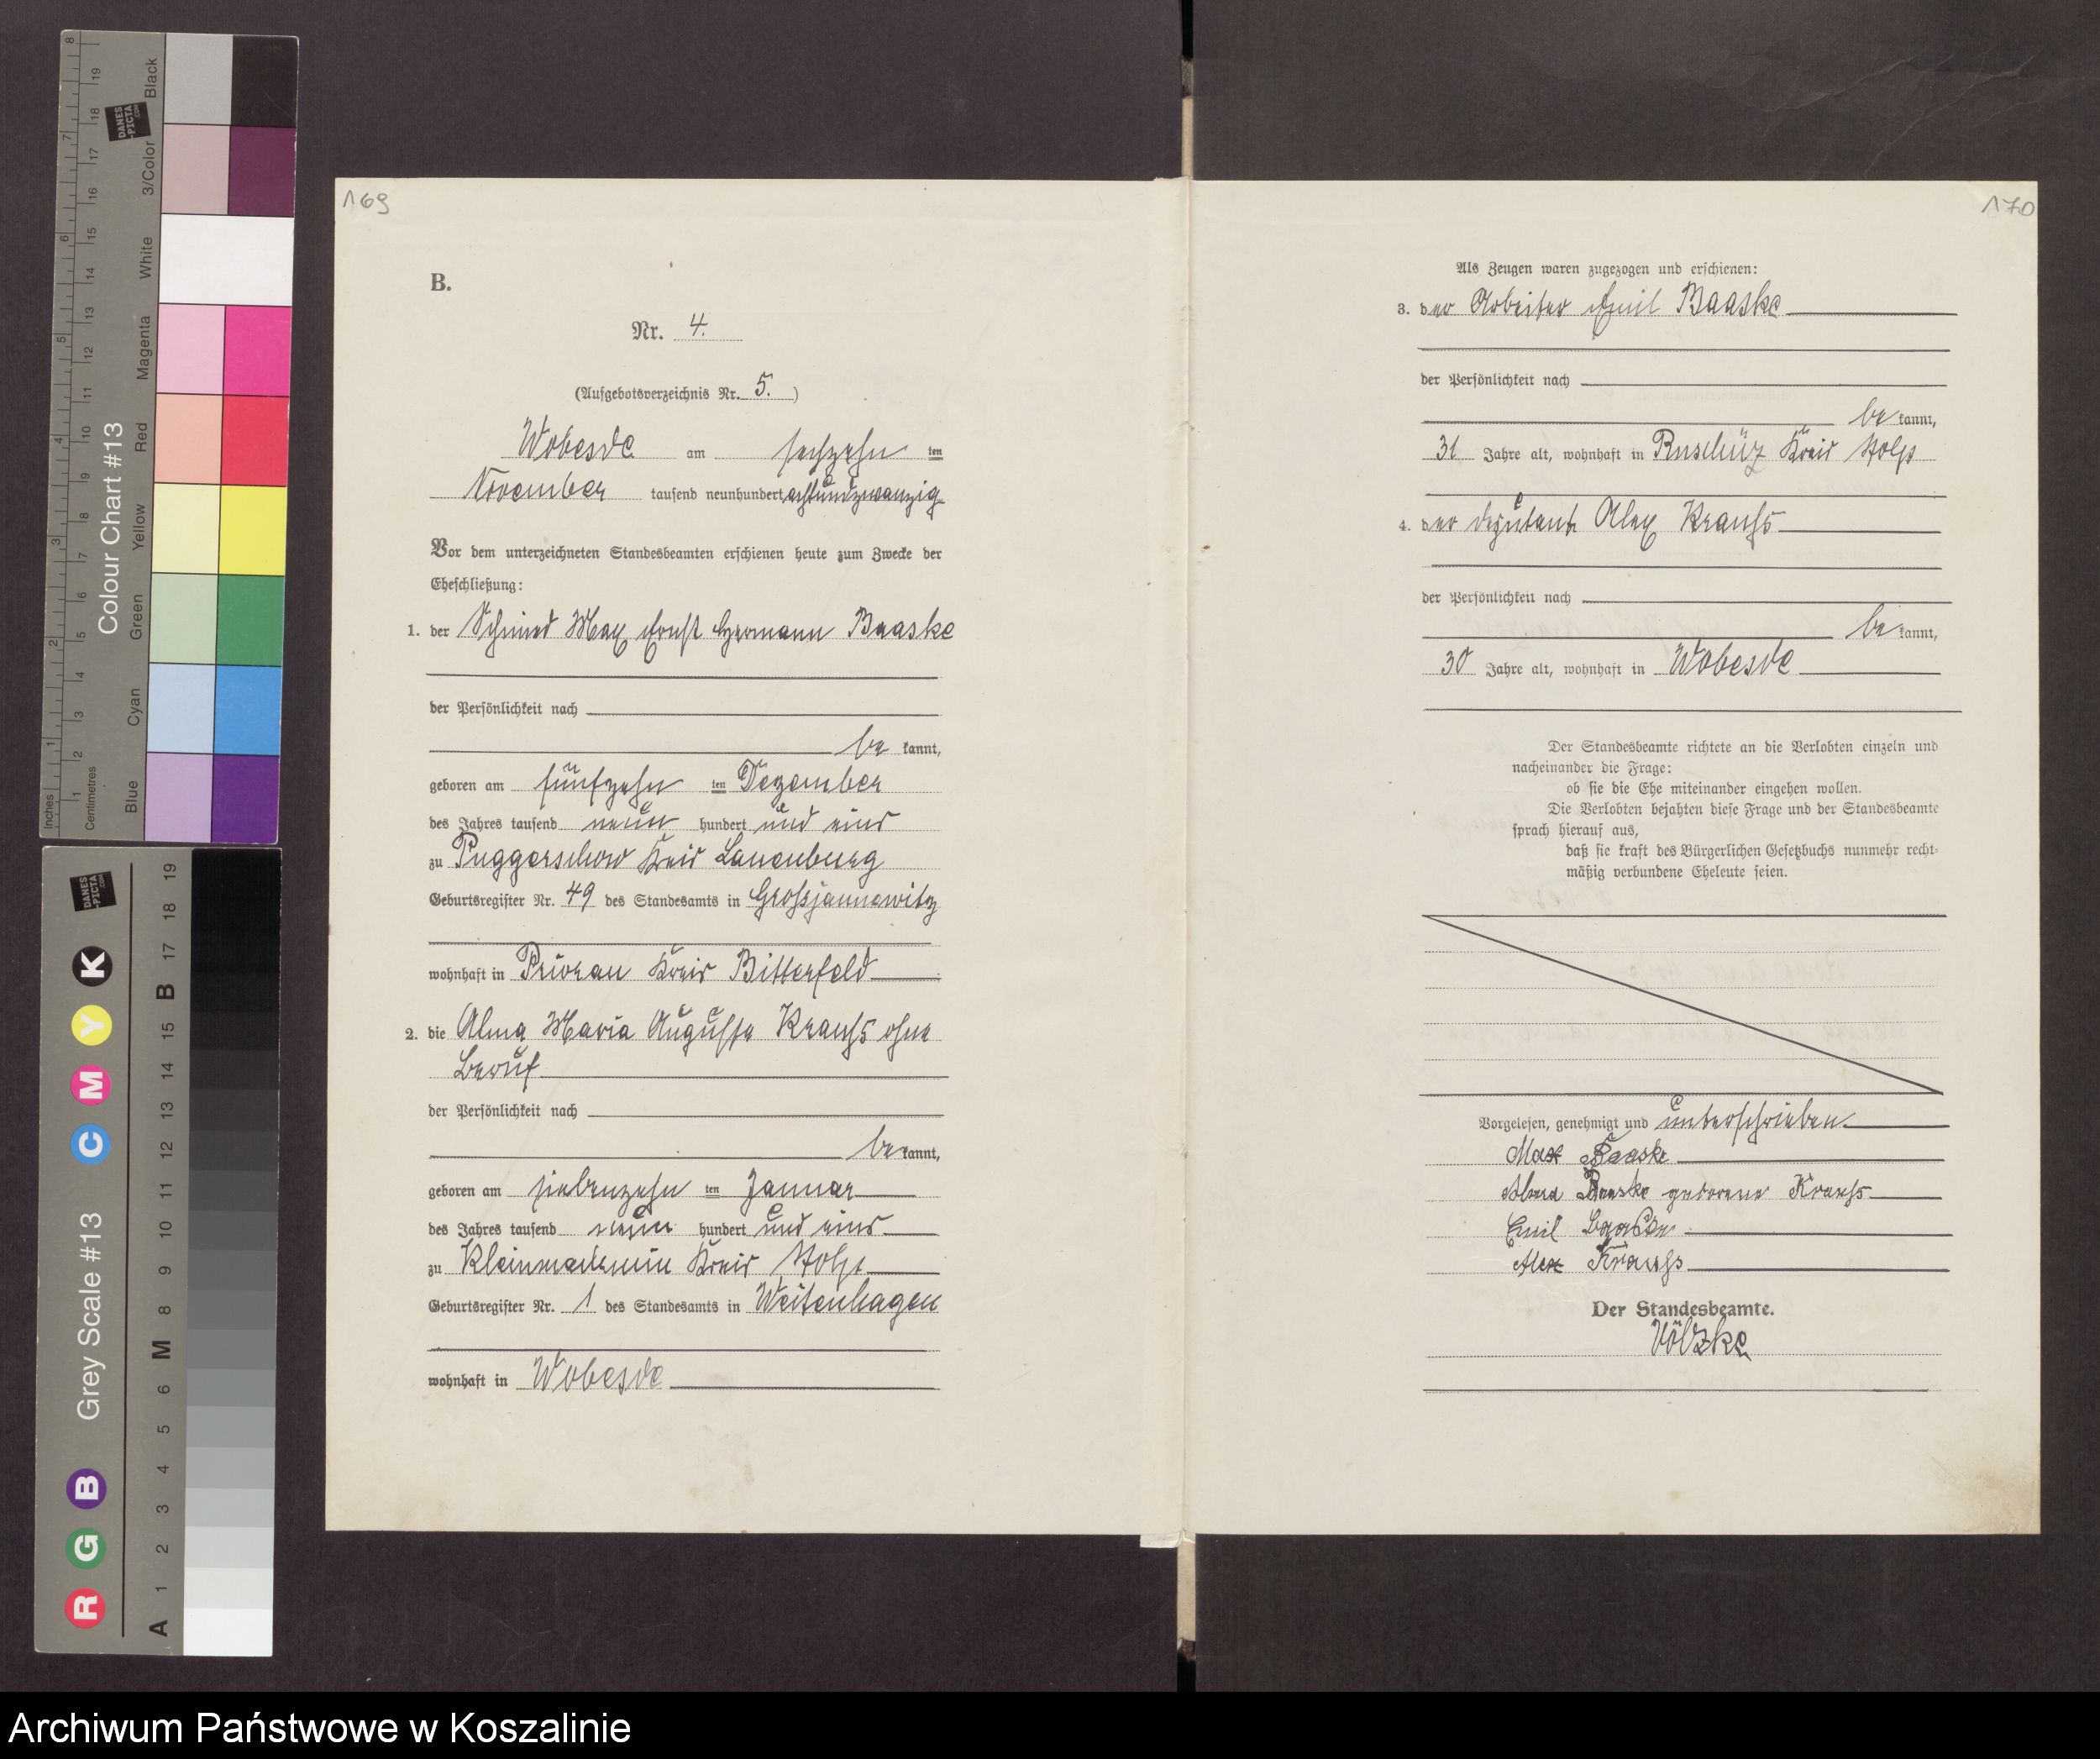 169
B.
Nr. 4.
(Aufgebotsverzeichnis Nr. 5.)
Wobesde am sechzehn ten
November tausend neunhundert achtundzwanzig
Vor dem unterzeichneten Standesbeamten erschienen heute zum Zwecke der
Eheschließung:
1. der Schmied Max Ernst Hermann Baaske
der Persönlichkeit nach
be kannt,
geboren am fünfzehn ten Dezember
des Jahres tausend neun hundert und eins
zu Puggerschow Kreis Lauenburg
Geburtsregister Nr. 49 des Standesamts in Großjannewitz
wohnhaft in Priorau Kreis Bitterfeld
2. die Alma Maria Auguste Krauß ohne
Beruf
der Persönlichkeit nach
be kannt,
geboren am siebenzehn ten Januar
des Jahres tausend neun hundert und eins
zu Kleinmachmin Kreis Stolp
Geburtsregister Nr. 1 des Standesamts in Weitenhagen
wohnhaft in Wobesde
170
Als Zeugen waren zugezogen und erschienen:
3. der Arbeiter Emil Baaske
der Persönlichkeit nach
be kannt,
31 Jahre alt, wohnhaft in Ruschütz Kreis Stolp
4. der Deputant Alex Krauß
der Persönlichkeit nach
be kannt,
30 Jahre alt, wohnhaft in Wobesde
Der Standesbeamte richtete an die Verlobten einzeln und
nacheinander die Frage:
ob sie die Ehe miteinander eingehen wollen.
Die Verlobten bejahten diese Frage und der Standesbeamte
sprach hierauf aus,
daß sie kraft des Bürgerlichen Gesetzbuchs nunmehr recht-
mäßig verbundene Eheleute seien.
Vorgelesen, genehmigt und unterschrieben
Max Baaske
Alma Baaske geborene Krauß
Emil Baaske
Alex Krauß
Der Standesbeamte.
Völzke
Inches 1 2 3 4 5 6 7 8
Centimetres 1 2 3 4 5 6 7 8 9 10 11 12 13 14 15 16 17 18 19
Colour Chart #13
Blue Cyan Green Yellow Red Magenta White 3/Color Black
DANES
-PICTA
.COM
Grey Scale #13
R G B C M Y K
A 1 2 3 4 5 6 M 8 9 10 11 12 13 14 15 B 17 18 19
DANES
-PICTA
.COM
Archiwum Państwowe w Koszalinie